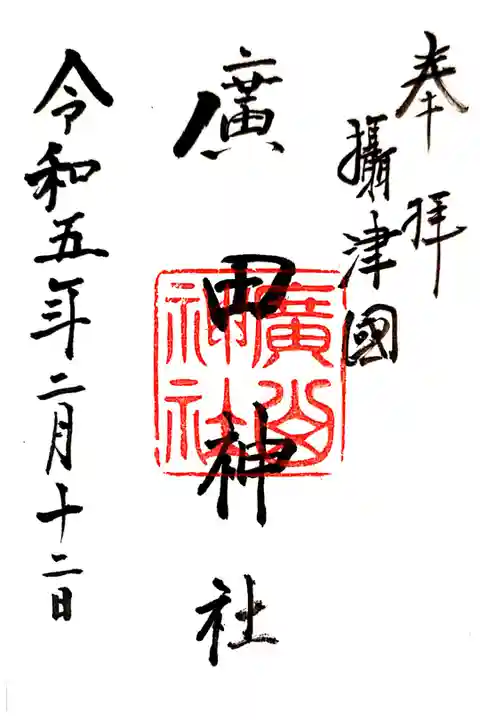 奉拝
攝津國
廣田神社
廣
神社
令和五年二月十二日